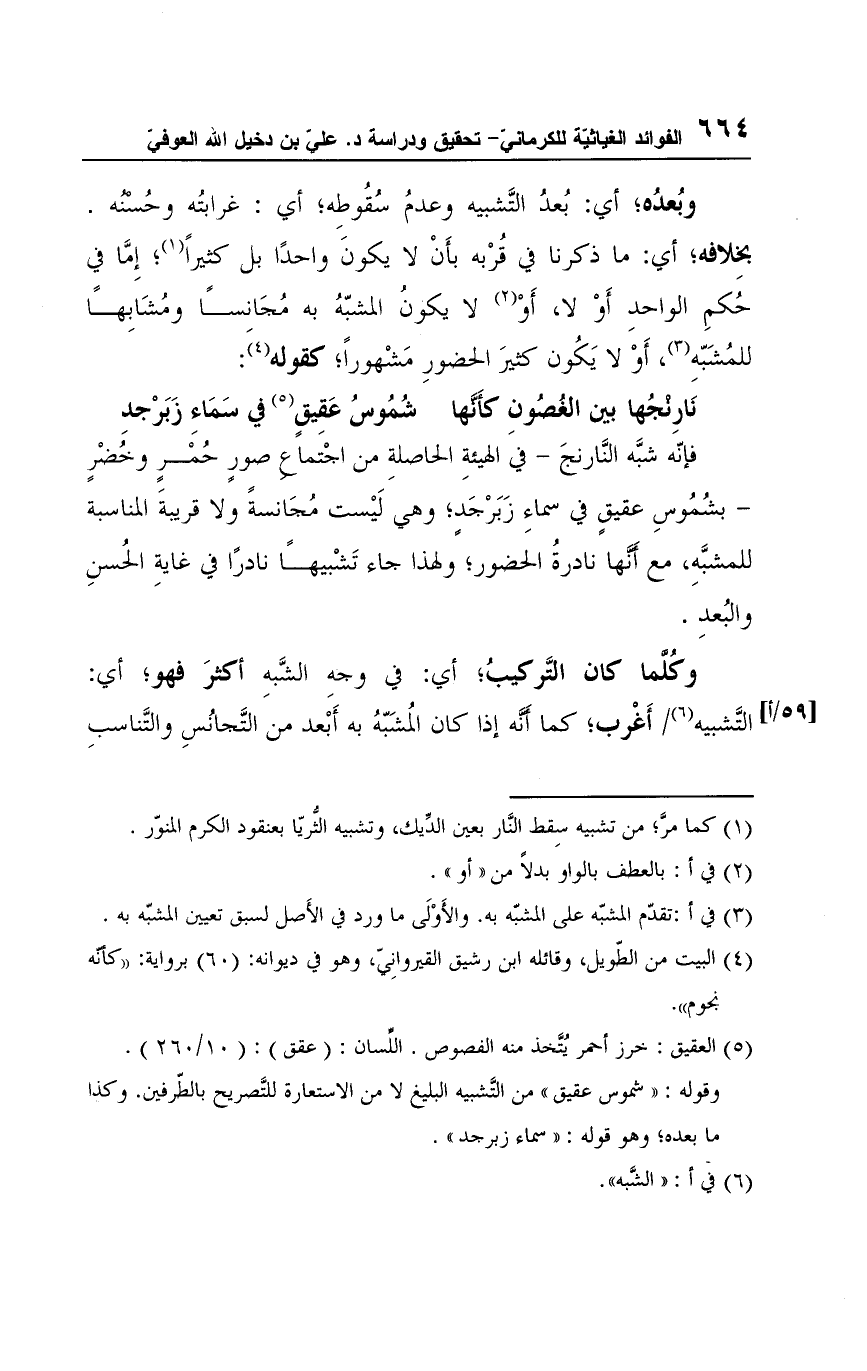 ٦٦٤ الفوائد الغياثيّة للكرمانيّ- تحقيق ودراسة د. عليّ بن دخيل الله العوفيّ
وبُعدُه؛ أي: بُعدُ التَّشبيه وعدمُ سُقُوطِه؛ أي : غرابتُه وحُسْنُه .
بخِلافه؛ أي: ما ذكرنا في قُرْبه بأَنْ لا يكونَ واحدًا بل كثيراً(١)؛ إمَّا في
حُكمِ الواحدِ أَوْ لا، أَوْ(٢) لا يكونُ المشبّهُ به مُجَانِسـًا ومُشَابِهـًا
للمُشَبّهِ(٣)، أَوْ لا يَكُون كثيرَ الحضورِ مَشْهوراً؛ كقوله(٤):
نَارِنْجُها بين الغُصُونِ كأَنَّها شُمُوسُ عَقِيقٍ(٥) في سَمَاءِ زَبَرْجدِ
فإنّه شبَّه النَّارنجَ – في الهيئةِ الحاصلةِ من اجْتماعِ صورٍ حُمْـرٍ وخُضْرٍ
– بشُمُوسِ عقيقٍ في سماءِ زَبَرْجَدٍ؛ وهي لَيْست مُجَانسةً ولا قريبةَ المناسبة
للمشبَّهِ، مع أَنَّها نادرةُ الحضور؛ ولهذا جاء تَشْبيهـًا نادرًا في غايةِ الحُسنِ
والبُعدِ .
وكُلَّما كان التَّركيبُ؛ أي: في وجهِ الشَّبهِ أكثرَ فهو؛ أي:
[٥٩/أ] التَّشبيه(٦)/ أَغْرب؛ كما أَنَّه إذا كان المُشَبّهُ به أَبْعد من التَّجانُسِ والتَّناسبِ
(١) كما مرَّ؛ من تشبيه سِقط النَّار بعين الدِّيك، وتشبيه الثُّريّا بعنقود الكرم المنوّر .
(٢) في أ : بالعطف بالواو بدلاً من « أو » .
(٣) في أ :تقدّم المشبّه على المشبّه به. والأَوْلَى ما ورد في الأَصل لسبق تعيين المشبّه به .
(٤) البيت من الطّويل، وقائله ابن رشيق القيروانيّ، وهو في ديوانه: (٦٠) برواية: «كأنّه
نجوم».
(٥) العقيق : خرز أحمر يُتَّخذ منه الفصوص . اللِّسان : ( عقق ) : ( ٢٦٠/١٠ ) .
وقوله : « شموس عقيق » من التَّشبيه البليغ لا من الاستعارة للتَّصريح بالطّرفين. وكذا
ما بعده؛ وهو قوله : « سماء زبرجد » .
(٦) في أ : « الشَّبه».